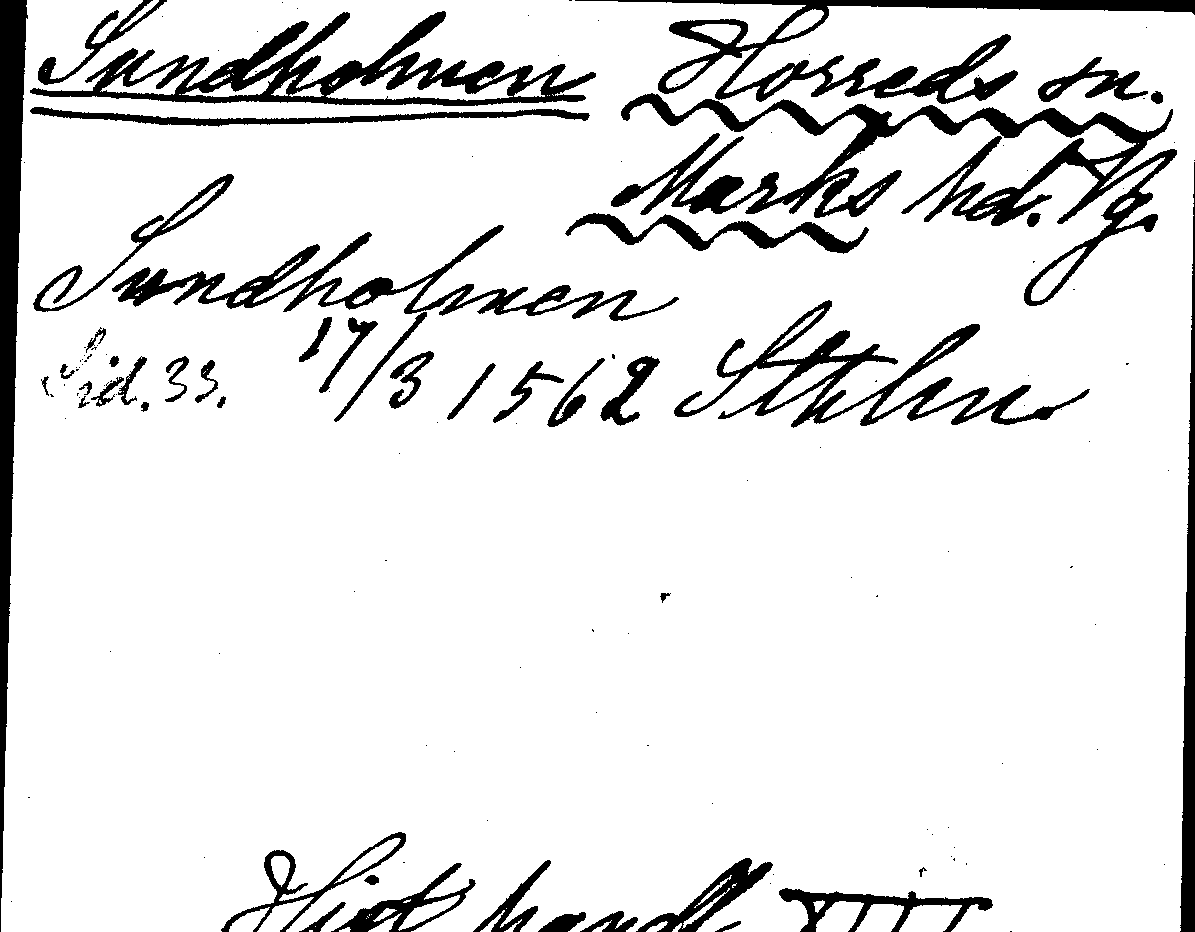 Sundholmen Horreds sn.
Marks hd. Vg.
Sundholmen
Sid. 33. 17/3 1562 Sthlm.
Hist. handl. XIII